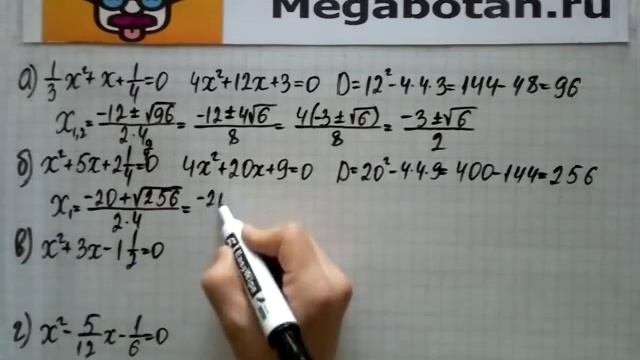 Megabotan.ru
а) 1/3 x² + x + 1/4 = 0 4x² + 12x + 3 = 0 D = 12² - 4·4·3 = 144 - 48 = 96
x₁,₂ = (-12 ± √96)/(2·4) = (-12 ± 4√6)/8 = 4(-3 ± √6)/8 = (-3 ± √6)/2
б) x² + 5x + 2 1/4 = 0 4x² + 20x + 9 = 0 D = 20² - 4·4·9 = 400 - 144 = 256
x₁ = (-20 + √256)/(2·4) = -2
в) x² + 3x - 1 1/2 = 0
г) x² - 5/12 x - 1/6 = 0